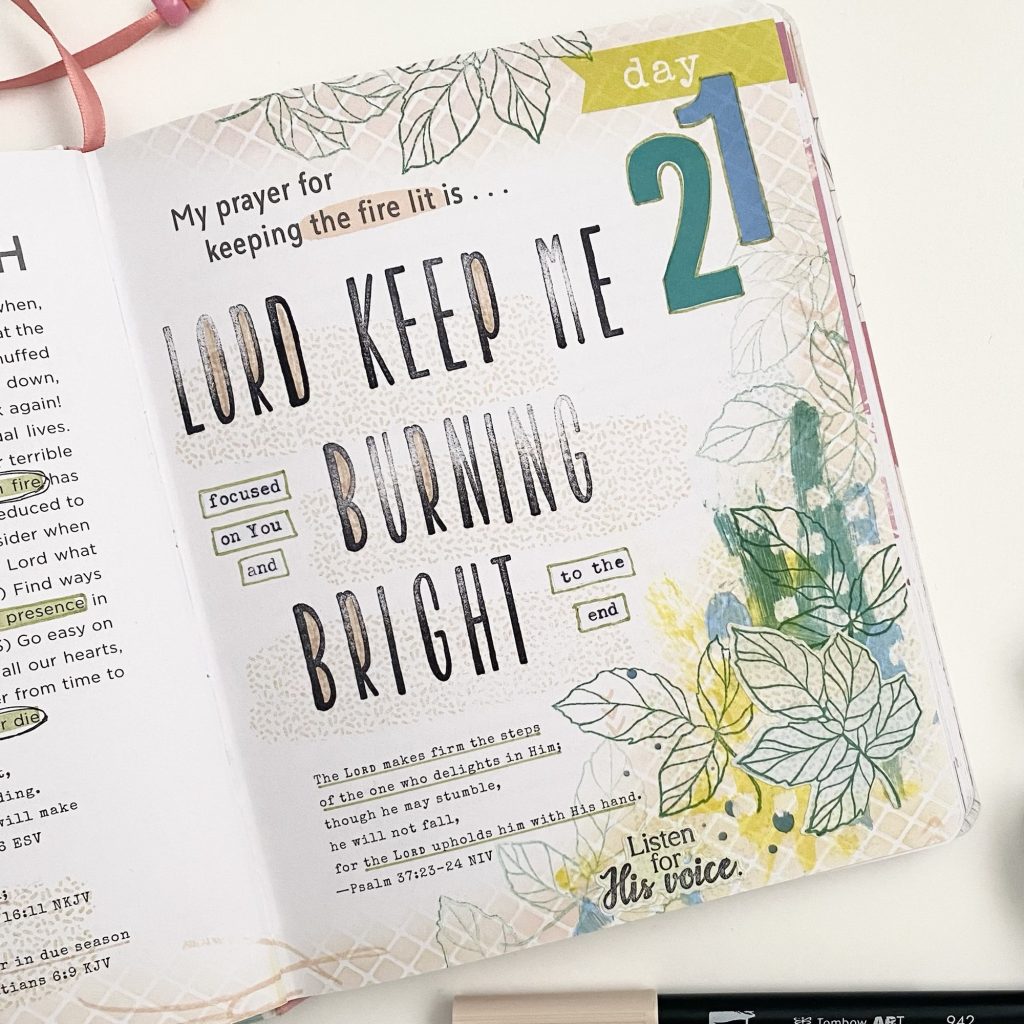 H
when,
at the
nuffed
down,
again!
al lives.
terrible
fire has
educed to
sider when
Lord what
) Find ways
presence in
) Go easy on
all our hearts,
er from time to
r die
ding.
will make
ESV
16:11 NKJV
r in due season
tians 6:9 KJV
day
21
My prayer for
keeping the fire lit is . . .
LORD KEEP ME
BURNING
focused
on You
and
BRIGHT
to the
end
The LORD makes firm the steps
of the one who delights in Him;
though he may stumble,
he will not fall,
for the LORD upholds him with His hand.
—Psalm 37:23-24 NIV
Listen
for
His voice.
Tombow ART
942